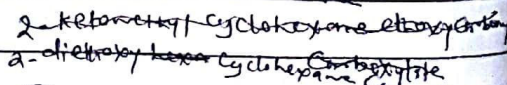 2-ketomethyl cyclohexane ethoxy
2-diethoxy hexa cyclohexane Carboxylate